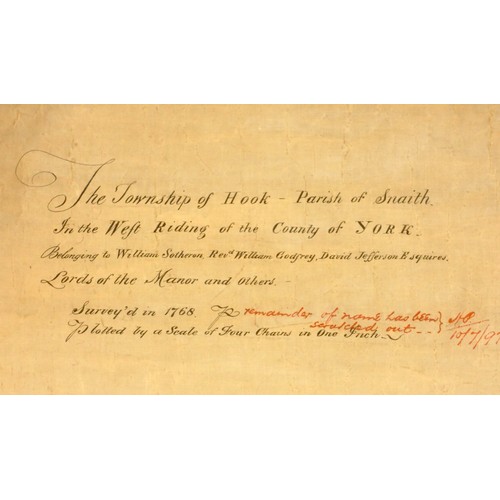 The Township of Hook - Parish of Snaith.
In the West Riding of the County of YORK.
Belonging to William Sotheron, Revd. William Godfrey, David Jefferson Esquires.
Lords of the Manor and others.-
Survey'd in 1768. remainder of name has been
scratched out - -
Plotted by a Scale of Four Chains in One Inch.
10/7/97